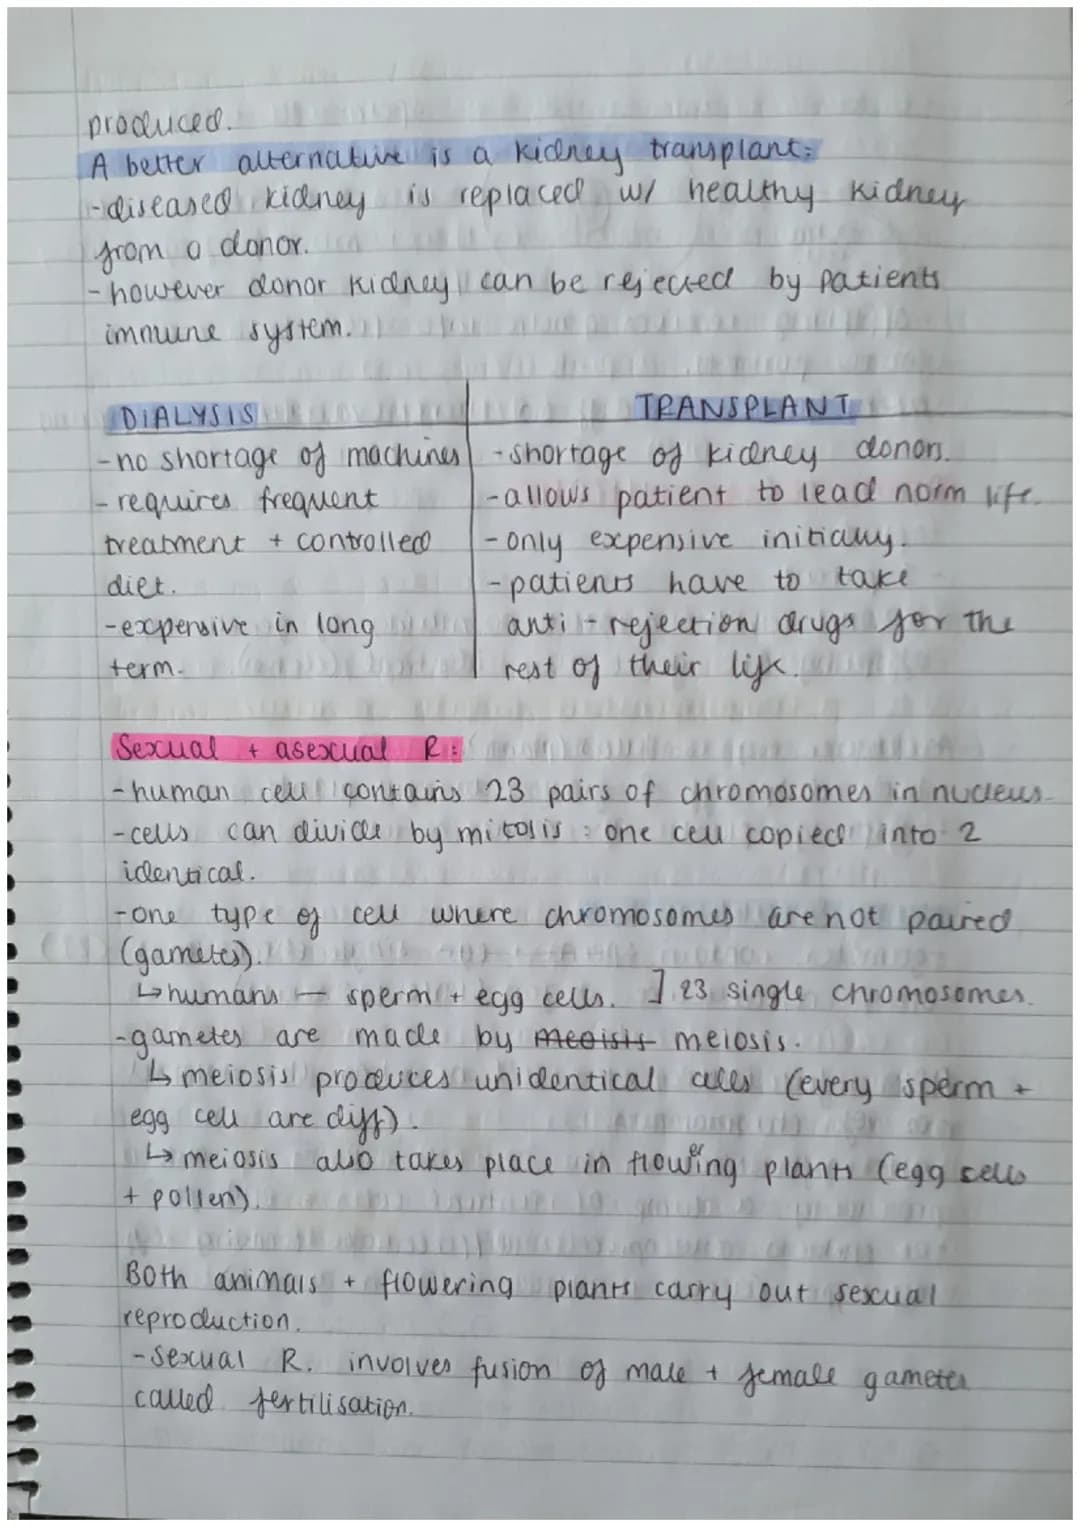 produced.
A better alternative is a kidney transplant:
-diseased kidney is replaced w/ healthy kidney
from a donor.
-however donor kidney can be rejected by patients
immune system.
DIALYSIS
-no shortage of machines
-requires frequent
treatment + controlled
diet.
-expensive in long
term.
TRANSPLANT
-shortage of kidney donors.
-allows patient to lead norm life.
-only expensive initially.
-patients have to take
anti-rejection drugs for the
rest of their life.
Sexual + asexual R:
-human cell contains 23 pairs of chromosomes in nucleus.
-cells can divide by mitosis: one cell copied into 2
identical.
-one type of cell where chromosomes are not paired
(gametes).
↳humans — sperm + egg cells. ] 23 single chromosomes.
-gametes are made by meoisis meiosis.
↳meiosis produces unidentical cells (every sperm +
egg cell are diff).
↳meiosis also takes place in flowering plants (egg cells
+ pollen).
Both animals + flowering plants carry out sexual
reproduction.
-Sexual R. involves fusion of male + female gametes
called fertilisation.